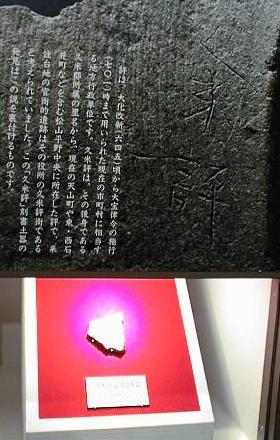 評は、大化改新(六四五)頃から大宝律令の施行
(七〇一)時まで用いられた現在の市町村に相当す
る地方行政単位です。久米評は、その後身である
久米郡所属の里名から、現在の天山町や東・西石
井町などを含む松山平野中央に所在した評で、来
住台地の官衙的遺跡はその役所の久米評衙である
と考えられていました。この「久米評」刻書土器の
発見はこの説を裏付けるものです。
久米評